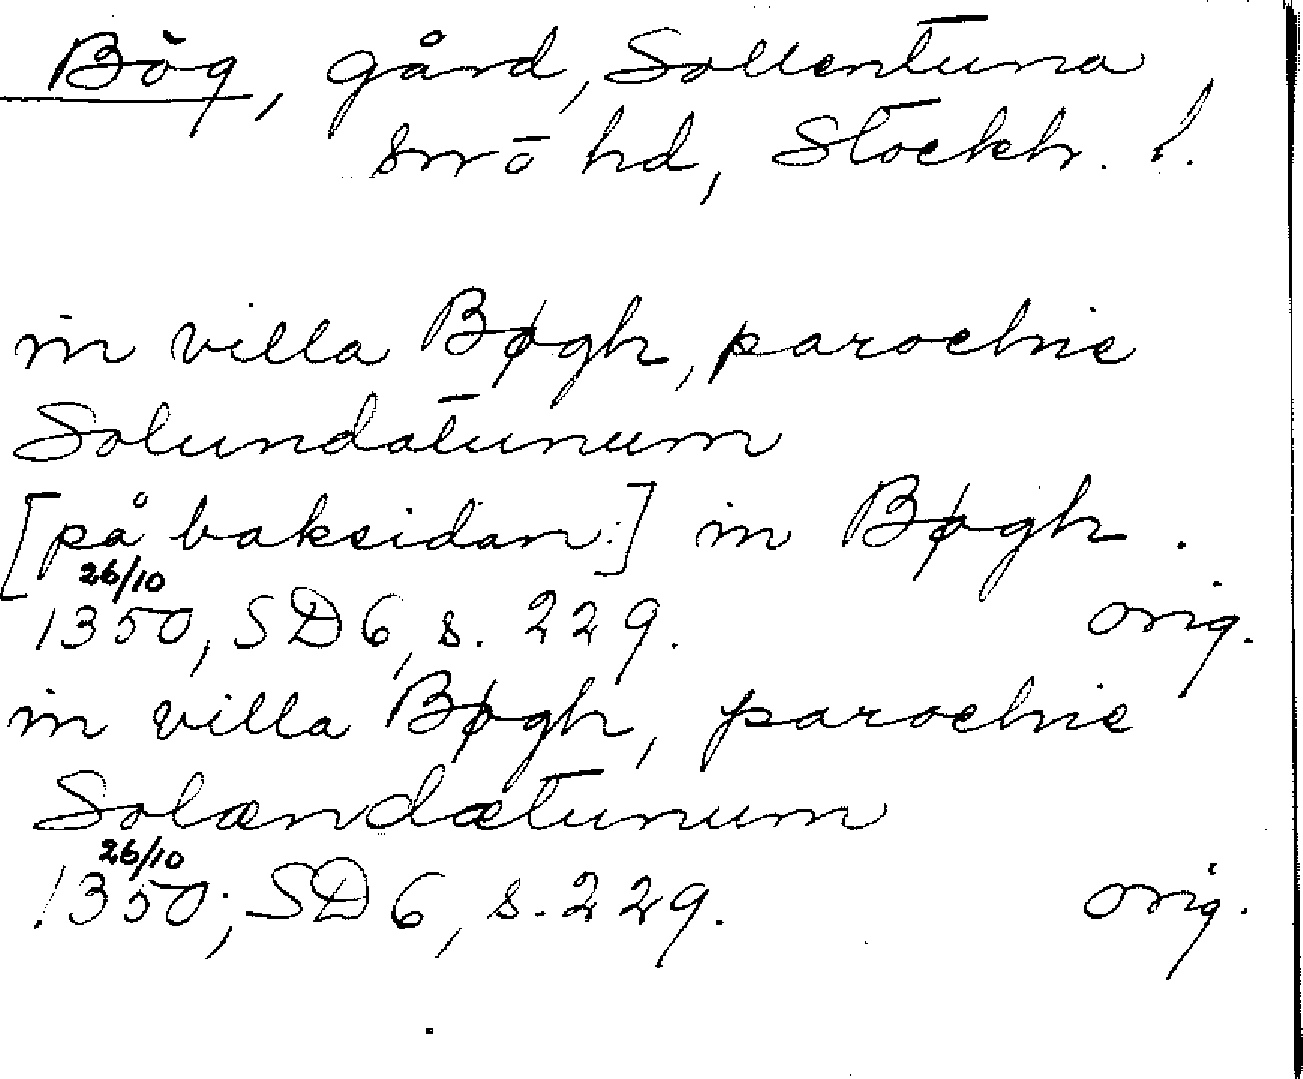 Bög, gård, Sollentuna
sn o hd, Stockh. l.
in villa Bøgh, parochie
Solundatunum
[på baksidan:] in Bøgh.
26/10
1350, SD 6, s. 229. orig.
in villa Bøgh, parochie
Solændætunum
26/10
1350, SD 6, s. 229. orig.